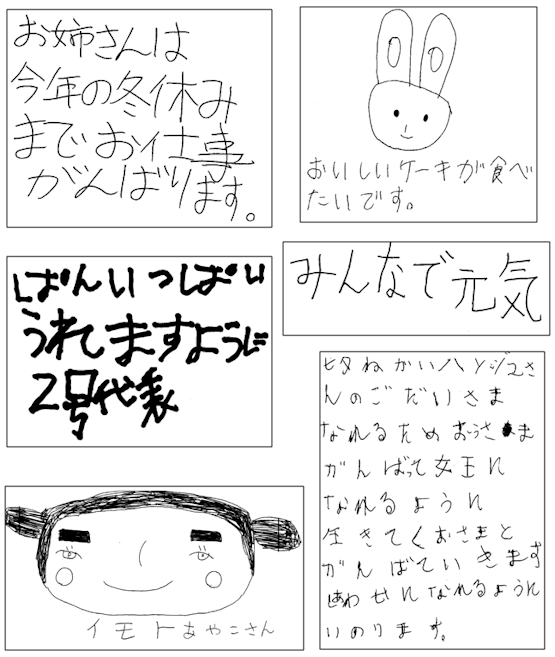 お姉さんは
今年の冬休み
までお仕事
がんばります。
おいしいケーキが食べ
たいです。
ぱんいっぱい
うれてますように
2号代表
みんなで元気
ねかい
んのごだいさま
なれるためおうさま
がんばって女王に
なれるように
生きてくおさまと
がんばていきます
しあわせになれるように
いのります。
イモトあやこさん